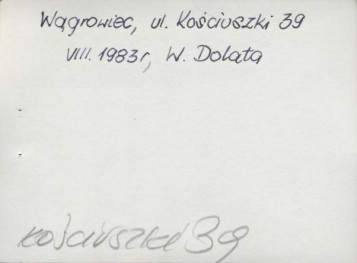 Wągrowiec, ul. Kościuszki 39
VIII. 1983r, W. Dolata
Kościuszki 39